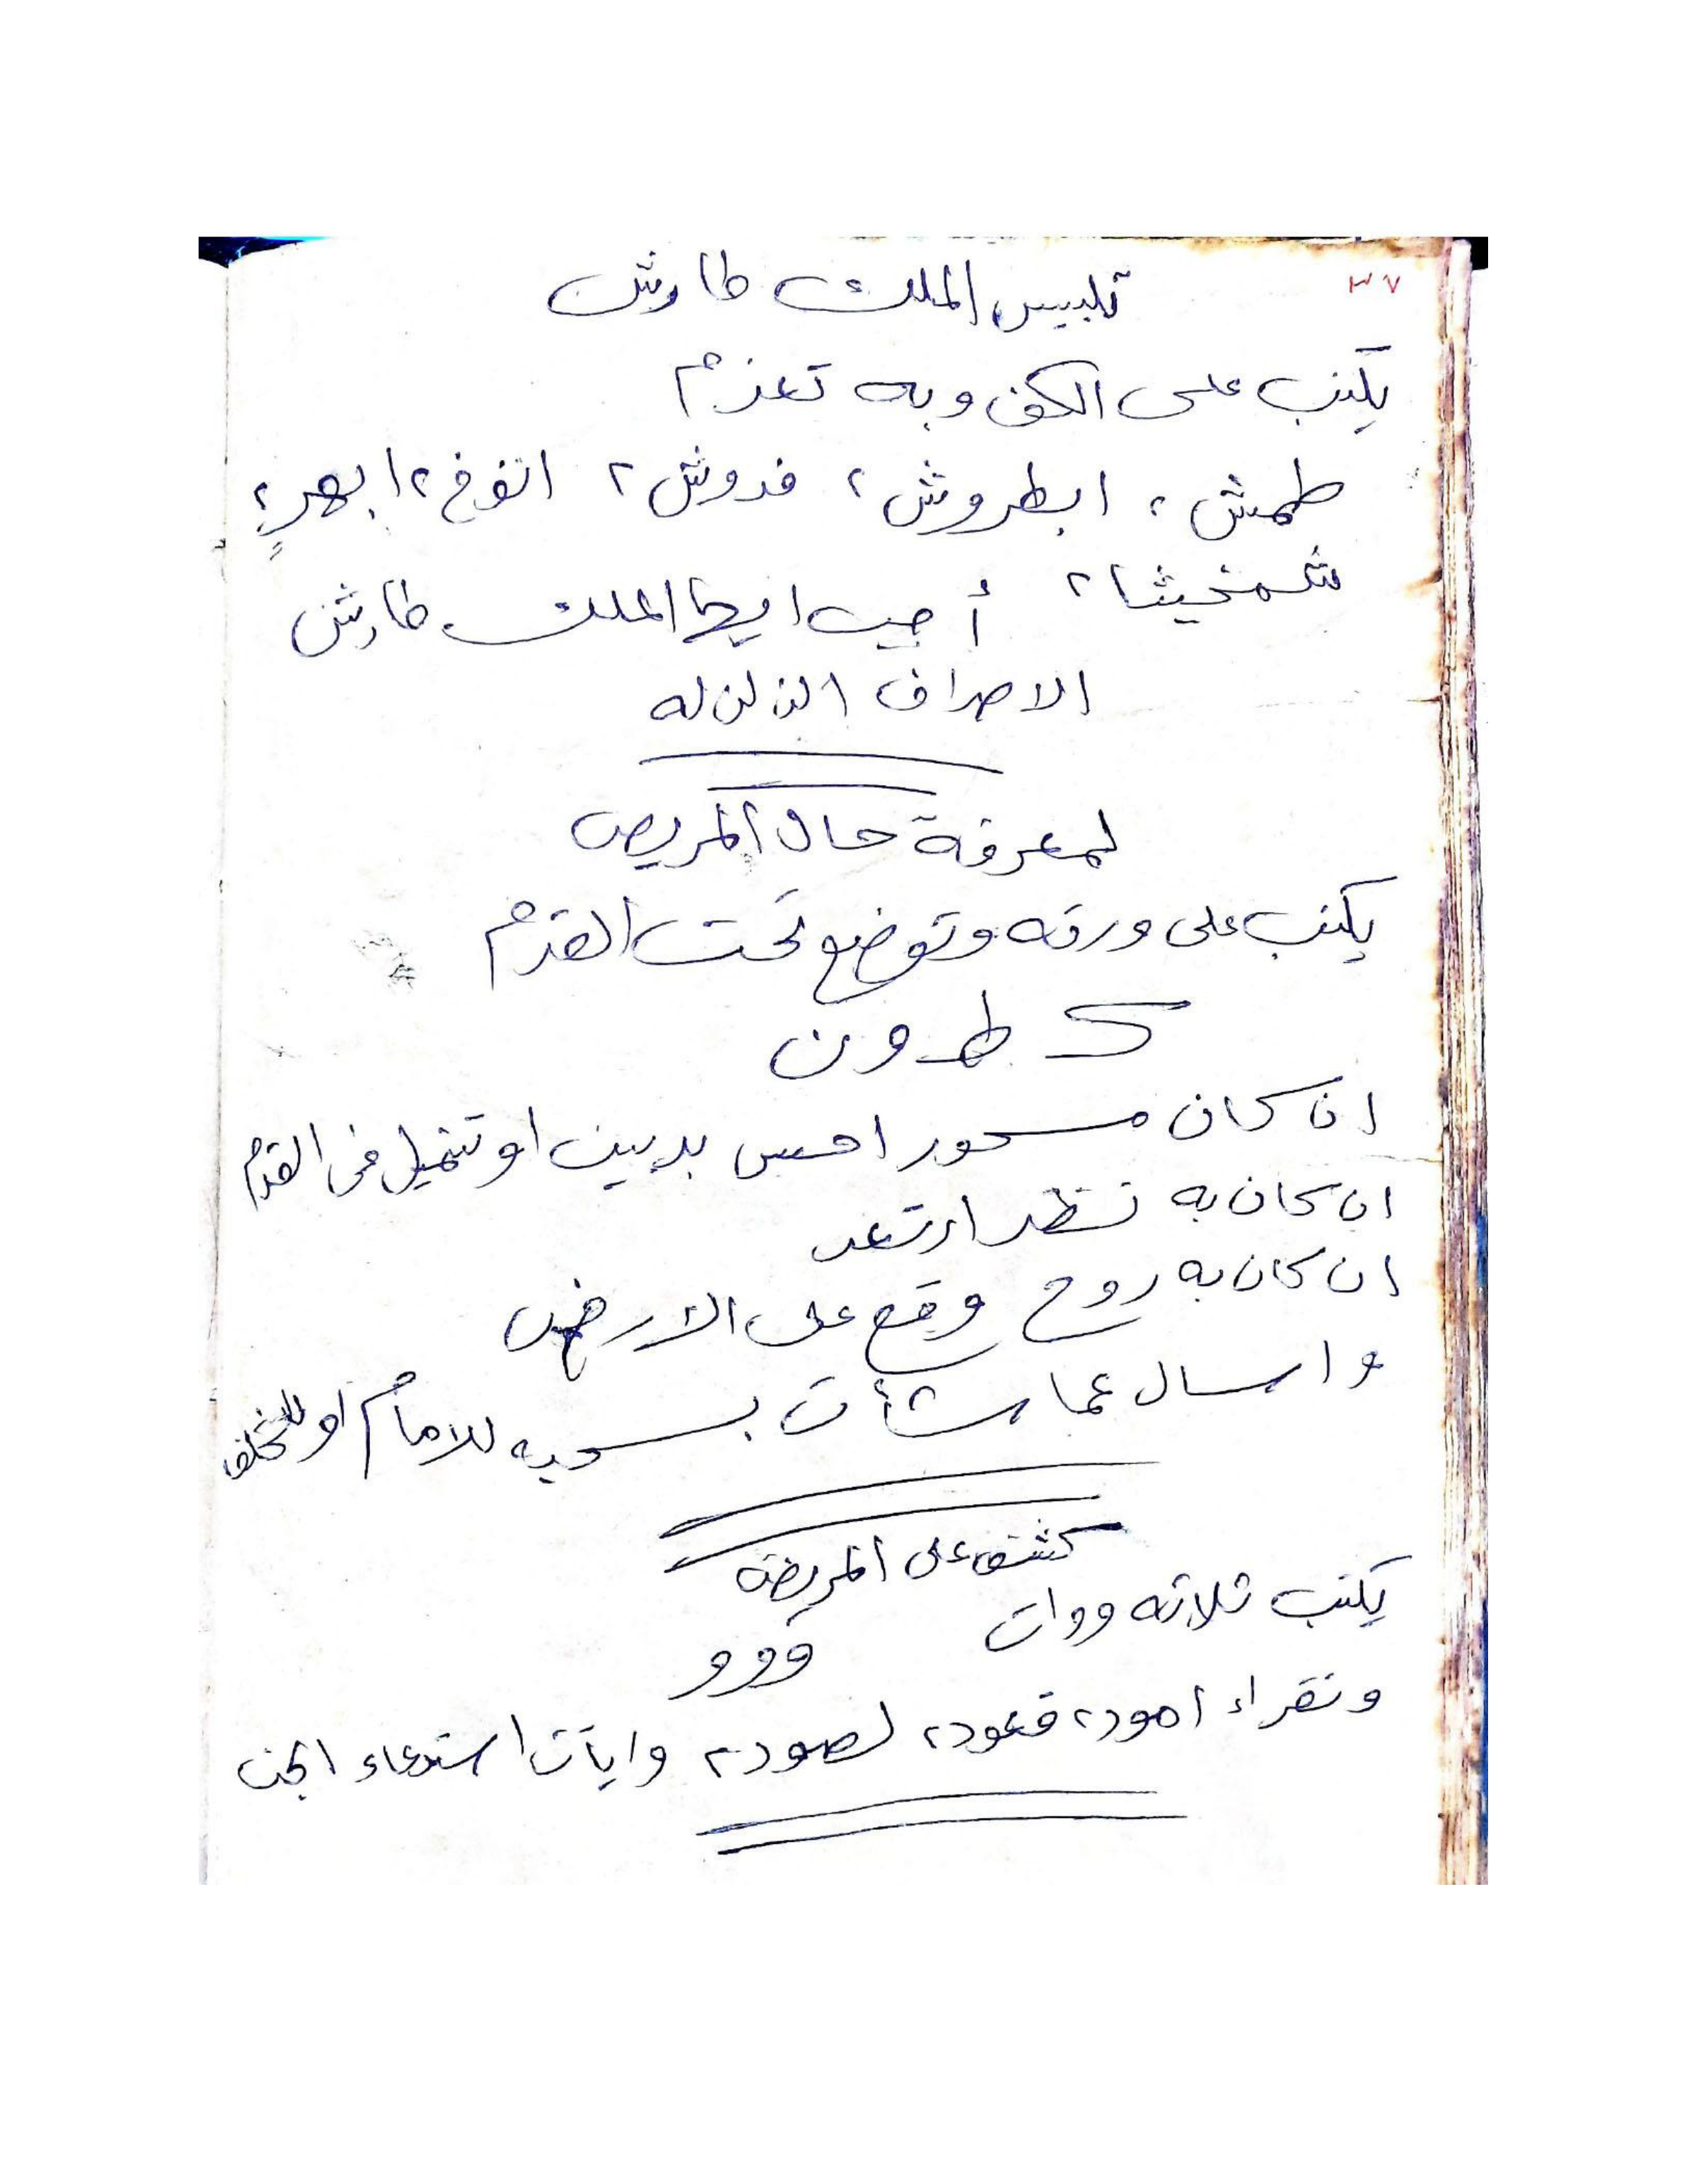 ٣٧
تلبيس الملك طارش
يكتب على الكف وبه تعزم
طمش ٢ ابطروش ٢ فدوش ٢ انفوخ ٢ ابهر ٢
شمخيشا ٢ أجيب ايها الملك طارش
الاصراف الزلزله
لمعرفة حال المريض
يكتب على ورقه وتوضع تحت القدم
ك طهرون
ان كان مسحور احس بدبيب او تنميل فى القدم
ان كان به نظر ارتعد
ان كان به روح وقع على الارض
واسال عما شأت بسحبه للامام او للخلف
كشف على المريض
يكتب ثلاثه ووات
ووو
وتقراء اهود ٢ قعود ٢ لصود ٢ وايات استدعاء الجن